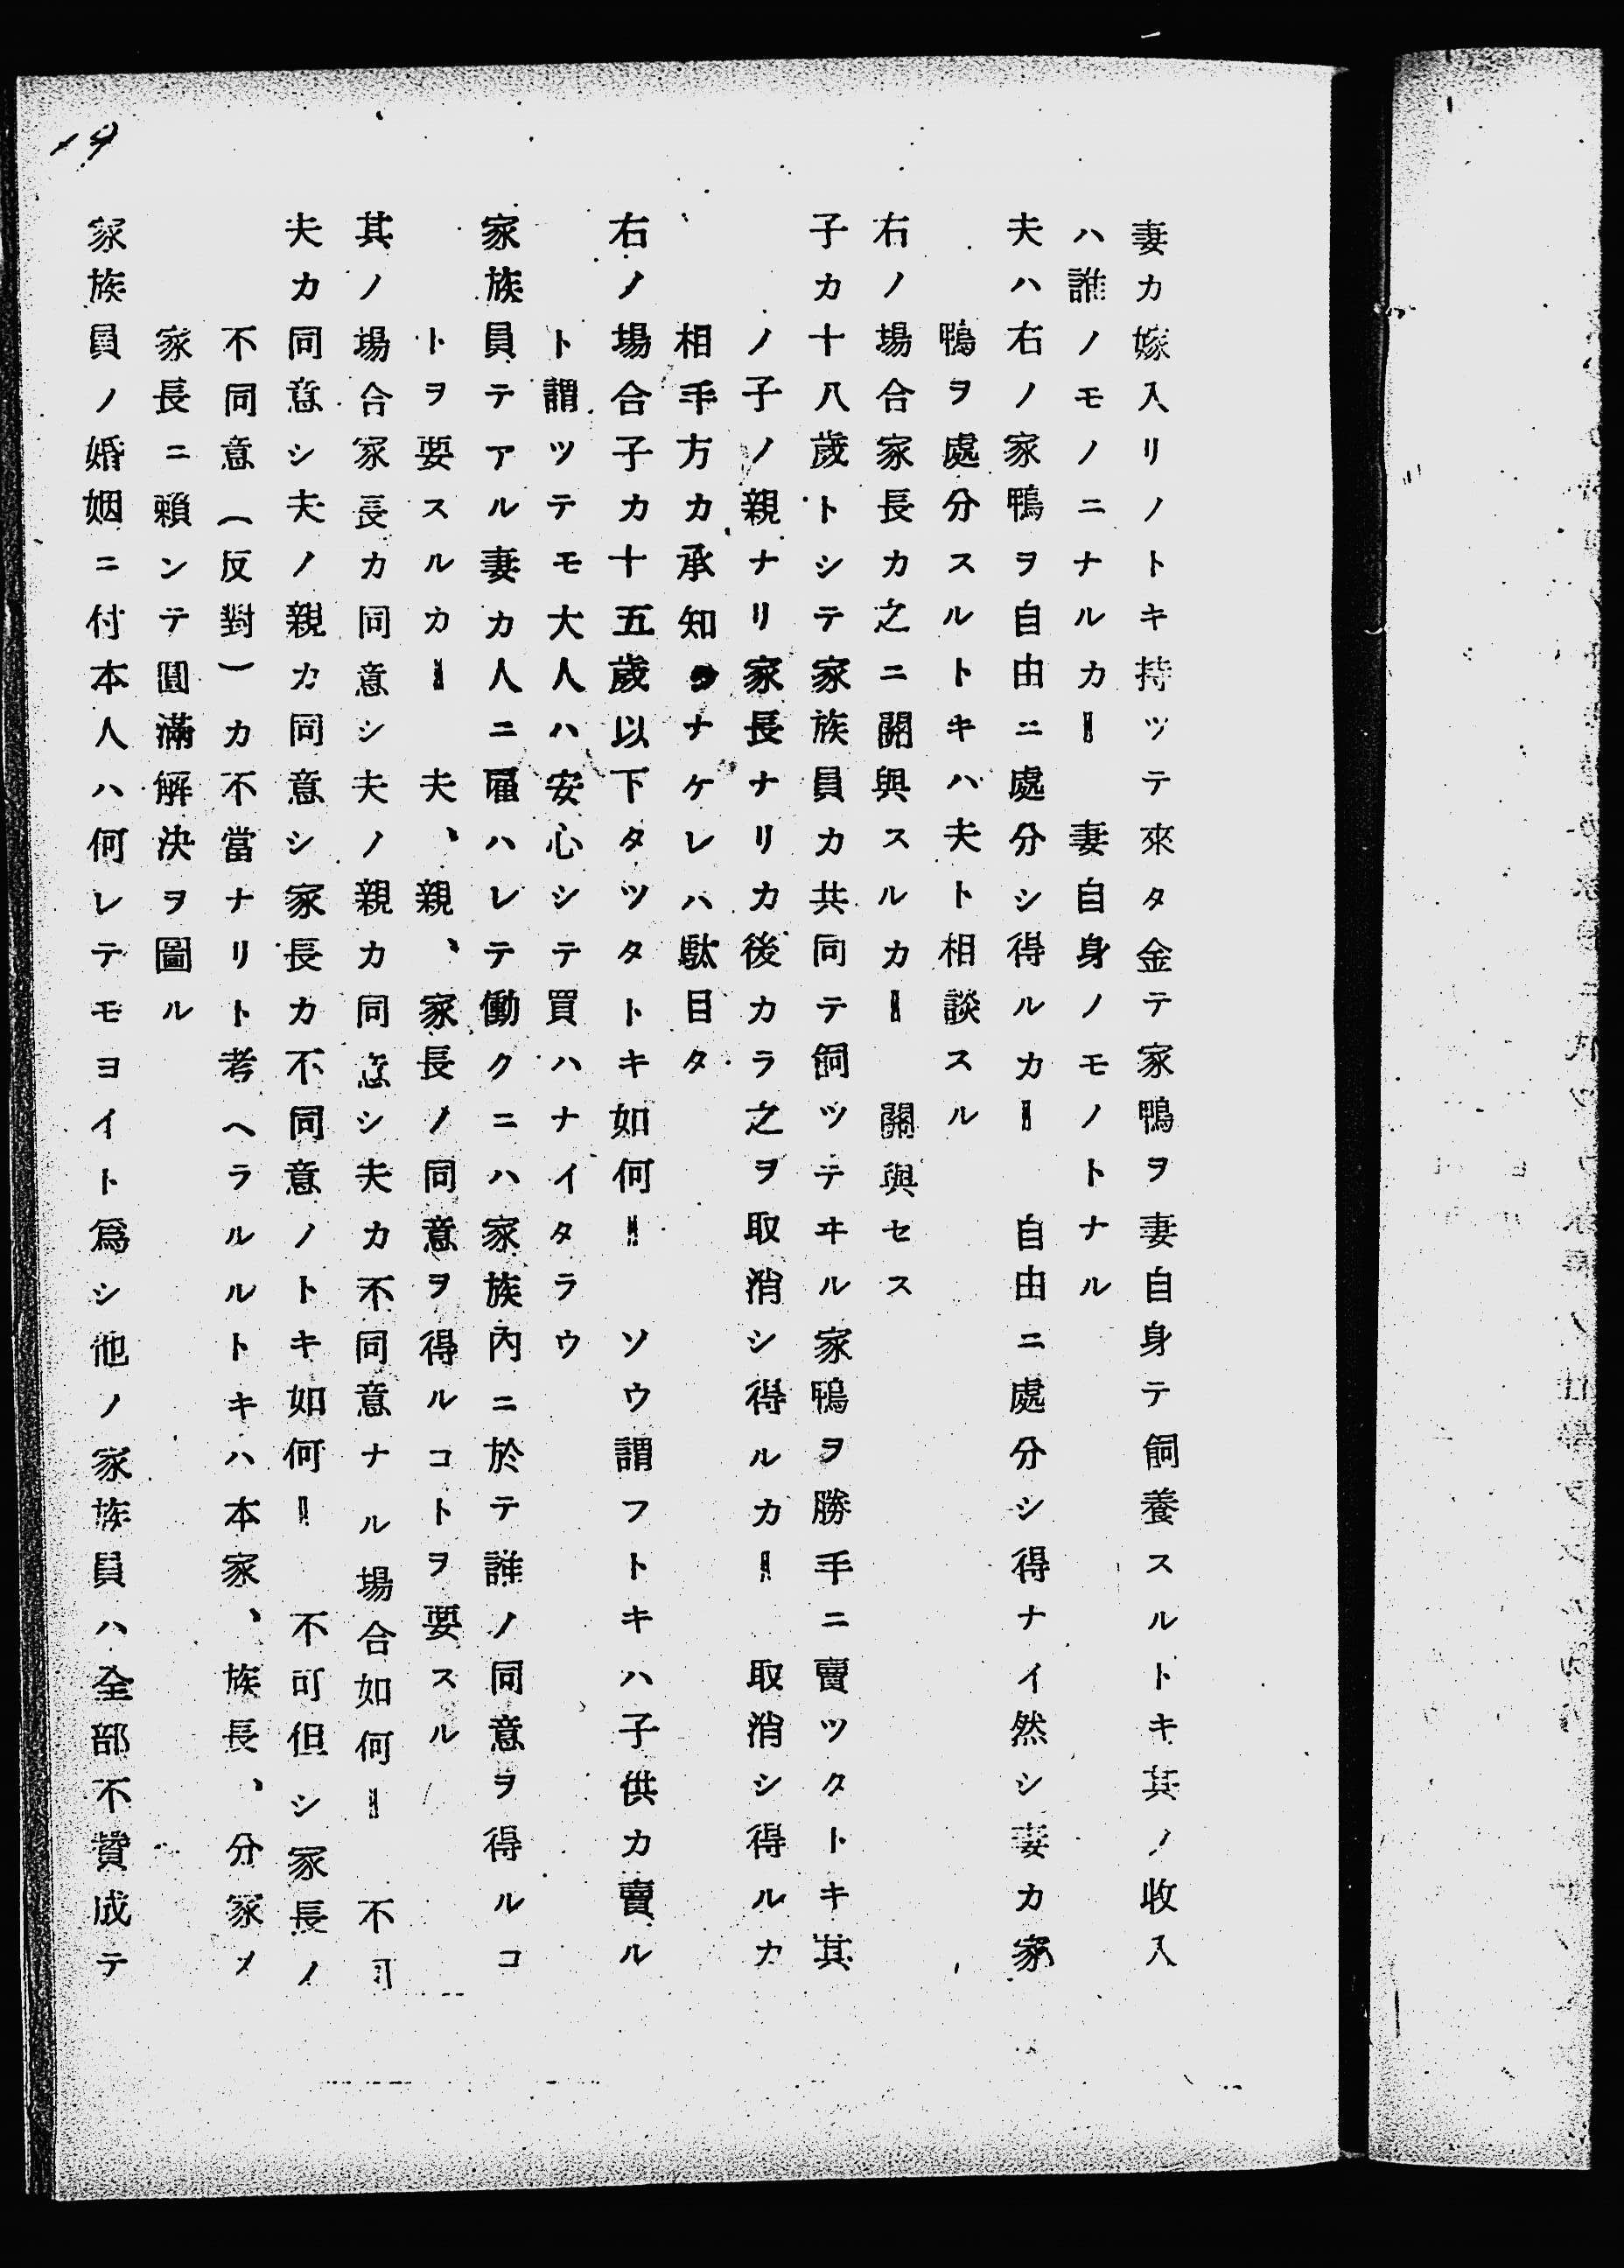 妻カ嫁入リノトキ持ツテ來タ金テ家鴨ヲ妻自身テ飼養スルトキ其ノ收入
ハ誰ノモノニナルカ‖　妻自身ノモノトナル
夫ハ右ノ家鴨ヲ自由ニ處分シ得ルカ‖　自由ニ處分シ得ナイ然シ妻カ家
鴨ヲ處分スルトキハ夫ト相談スル
右ノ場合家長カ之ニ關與スルカ‖　關與セス
子カ十八歲トシテ家族員カ共同テ飼ツテヰル家鴨ヲ勝手ニ賣ツタトキ其
ノ子ノ親ナリ家長ナリカ後カラ之ヲ取消シ得ルカ‖　取消シ得ルカ
相手方カ承知ナケレハ駄目タ
右ノ場合子カ十五歲以下タツタトキ如何‖　ソウ謂フトキハ子供カ賣ル
ト謂ツテモ大人ハ安心シテ買ハナイタラウ
家族員テアル妻カ人ニ雇ハレテ働クニハ家族內ニ於テ誰ノ同意ヲ得ルコ
トヲ要スルカ‖　夫、親、家長ノ同意ヲ得ルコトヲ要スル
其ノ場合家長カ同意シ夫ノ親カ同意シ夫カ不同意ナル場合如何‖　不可
夫カ同意シ夫ノ親カ同意シ家長カ不同意ノトキ如何‖　不可但シ家長ノ
不同意（反對）カ不當ナリト考ヘラルルトキハ本家、族長、分家ノ
家長ニ賴ンテ圓滿解決ヲ圖ル
家族員ノ婚姻ニ付本人ハ何レテモヨイト爲シ他ノ家族員ハ全部不贊成テ
19